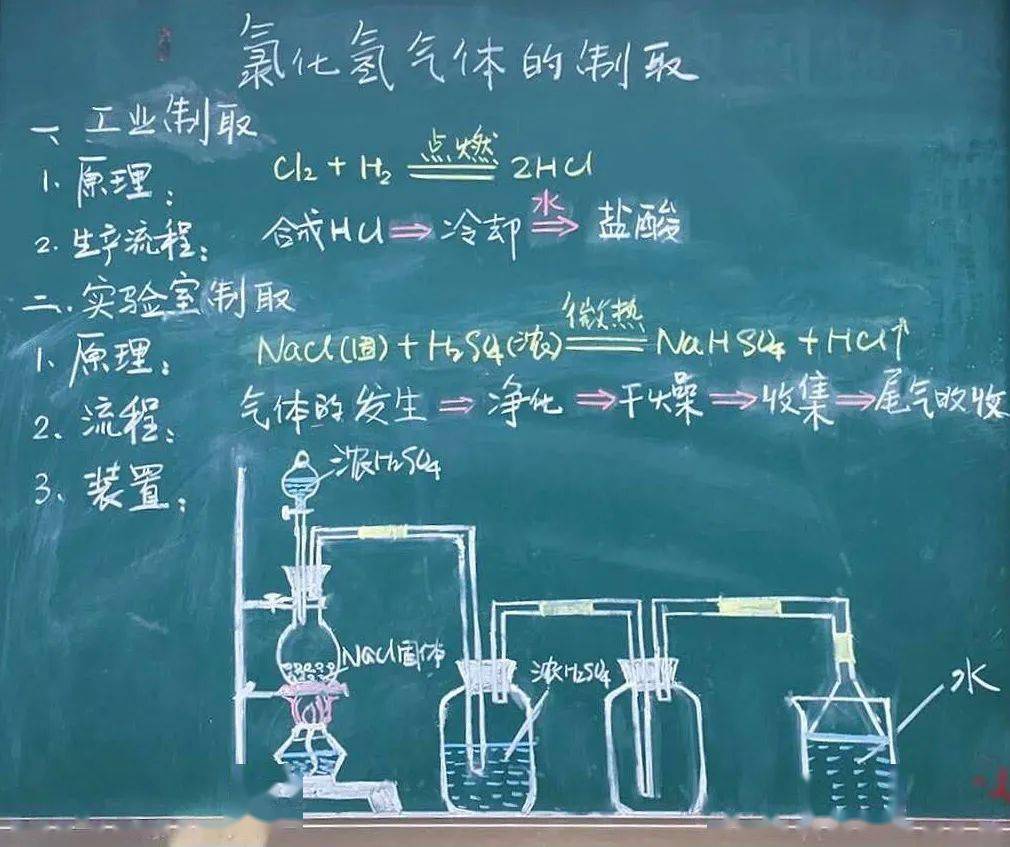 氯化氢气体的制取
一、工业制取
1. 原理： Cl₂ + H₂ 点燃 2HCl
2. 生产流程： 合成HCl ⇒ 冷却 水⇒ 盐酸
二、实验室制取
1. 原理： NaCl(固) + H₂SO₄(浓) 微热 NaHSO₄ + HCl↑
2. 流程： 气体的发生 ⇒ 净化 ⇒ 干燥 ⇒ 收集 ⇒ 尾气吸收
3. 装置：
浓H₂SO₄
NaCl固体
浓H₂SO₄
水